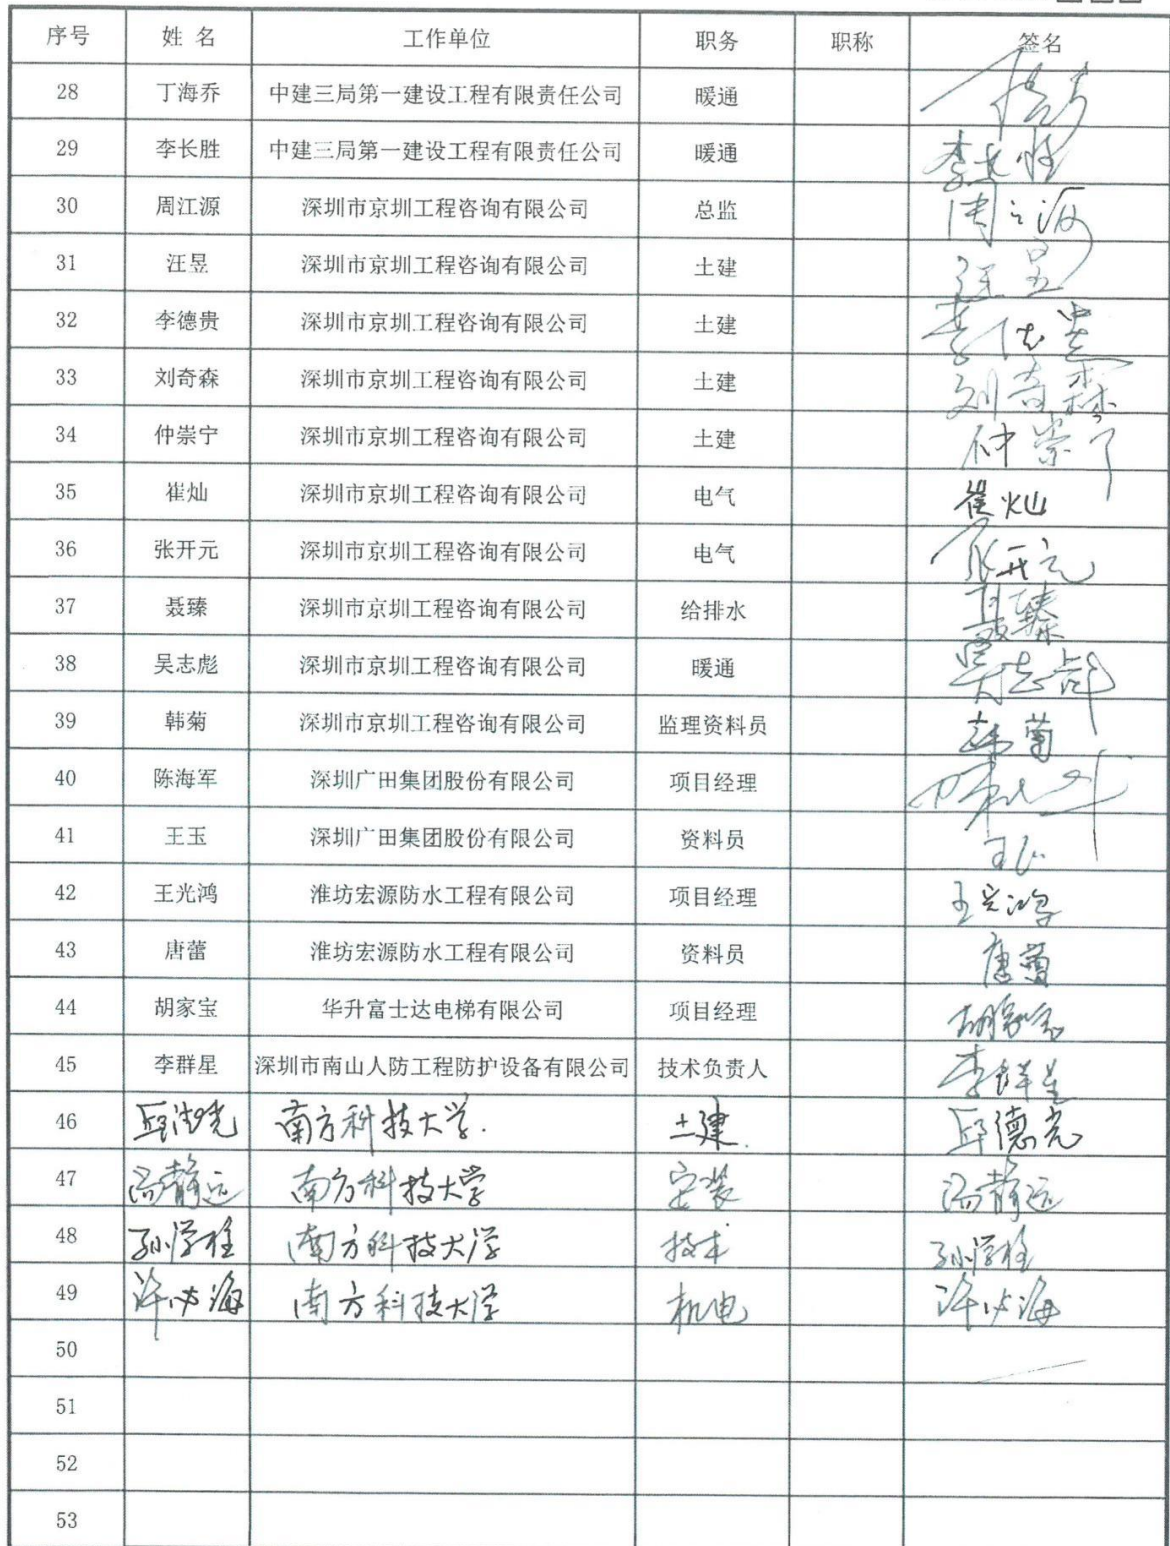 序号 姓 名 工作单位 职务 职称 签名
28 丁海乔 中建三局第一建设工程有限责任公司 暖通
29 李长胜 中建三局第一建设工程有限责任公司 暖通 李长胜
30 周江源 深圳市京圳工程咨询有限公司 总监 周江源
31 汪昱 深圳市京圳工程咨询有限公司 土建 汪昱
32 李德贵 深圳市京圳工程咨询有限公司 土建 李德贵
33 刘奇森 深圳市京圳工程咨询有限公司 土建 刘奇森
34 仲崇宁 深圳市京圳工程咨询有限公司 土建 仲崇宁
35 崔灿 深圳市京圳工程咨询有限公司 电气 崔灿
36 张开元 深圳市京圳工程咨询有限公司 电气 张开元
37 聂臻 深圳市京圳工程咨询有限公司 给排水 聂臻
38 吴志彪 深圳市京圳工程咨询有限公司 暖通 吴志彪
39 韩菊 深圳市京圳工程咨询有限公司 监理资料员 韩菊
40 陈海军 深圳广田集团股份有限公司 项目经理
41 王玉 深圳广田集团股份有限公司 资料员 王玉
42 王光鸿 淮坊宏源防水工程有限公司 项目经理 王光鸿
43 唐蕾 淮坊宏源防水工程有限公司 资料员 唐蕾
44 胡家宝 华升富士达电梯有限公司 项目经理 胡家宝
45 李群星 深圳市南山人防工程防护设备有限公司 技术负责人 李群星
46 邱德光 南方科技大学. 土建. 邱德光
47 汤静远 南方科技大学 安装 汤静远
48 孙学桂 南方科技大学 技术 孙学桂
49 许少海 南方科技大学 机电 许少海
50
51
52
53